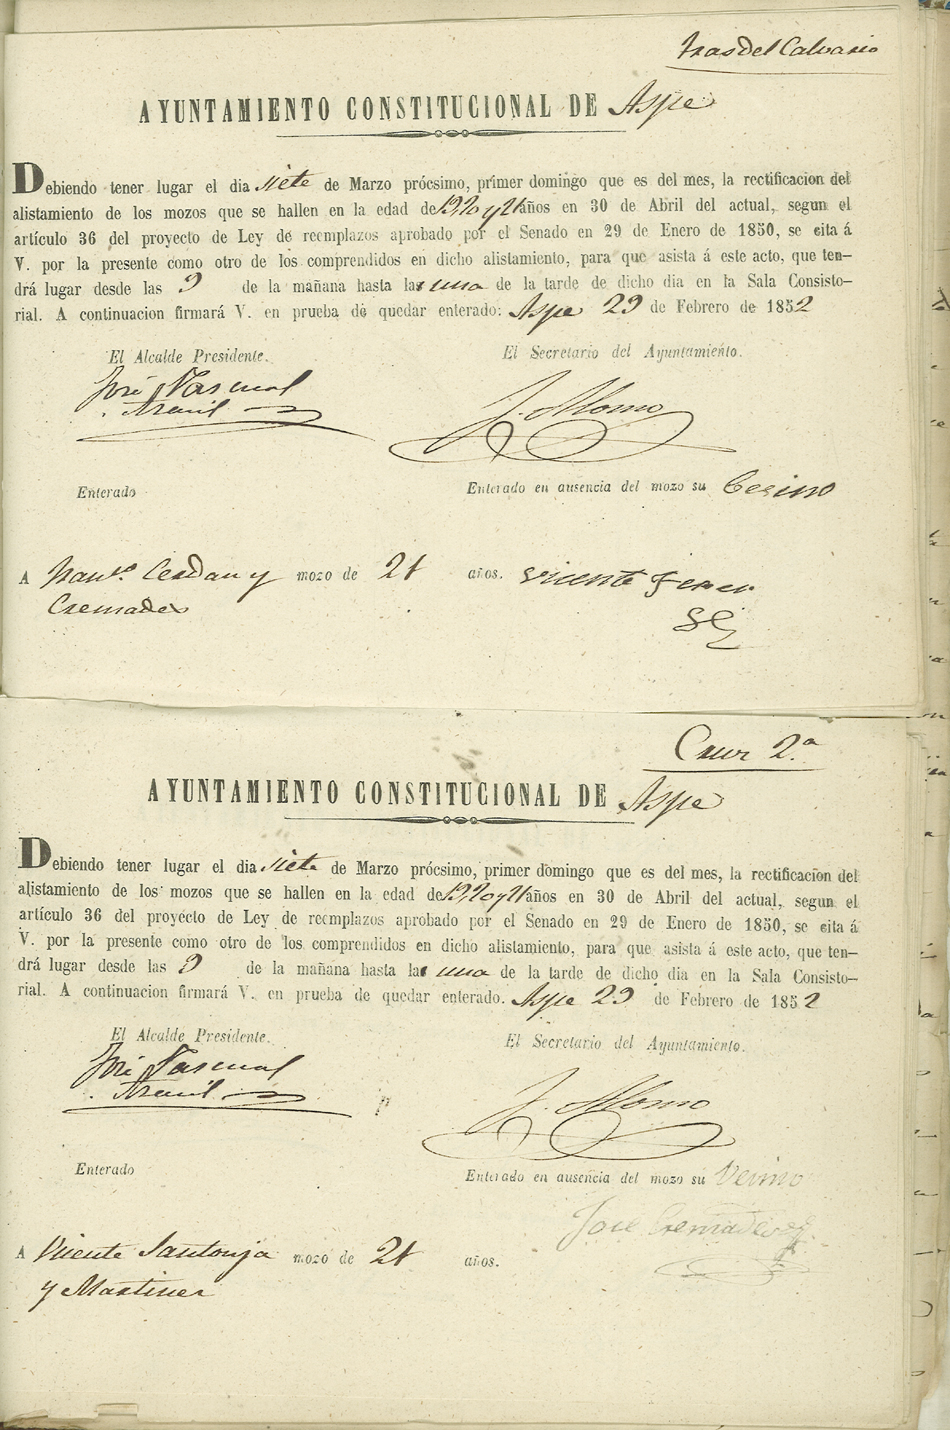 Tras del Calvario
AYUNTAMIENTO CONSTITUCIONAL DE Aspe
Debiendo tener lugar el dia siete de Marzo prócsimo, primer domingo que es del mes, la rectificacion del
alistamiento de los mozos que se hallen en la edad de y 21 años en 30 de Abril del actual, segun el
artículo 36 del proyecto de Ley de reemplazos aprobado por el Senado en 29 de Enero de 1850, se cita á
V. por la presente como otro de los comprendidos en dicho alistamiento, para que asista á este acto, que ten-
drá lugar desde las 9 de la mañana hasta la una de la tarde de dicho dia en la Sala Consisto-
rial. A continuacion firmará V. en prueba de quedar enterado: Aspe 29 de Febrero de 1852
El Alcalde Presidente.
El Secretario del Ayuntamiento.
José Pascual
J. Alonso
Enterado
Enterado en ausencia del mozo su Becino
A Franco. Cerdan y mozo de 21 años. Vicente Ferrer
Cremades
Cruz 2.a
AYUNTAMIENTO CONSTITUCIONAL DE Aspe
Debiendo tener lugar el dia siete de Marzo prócsimo, primer domingo que es del mes, la rectificacion del
alistamiento de los mozos que se hallen en la edad de y 21 años en 30 de Abril del actual, segun el
artículo 36 del proyecto de Ley de reemplazos aprobado por el Senado en 29 de Enero de 1850, se cita á
V. por la presente como otro de los comprendidos en dicho alistamiento, para que asista á este acto, que ten-
drá lugar desde las 9 de la mañana hasta la una de la tarde de dicho dia en la Sala Consisto-
rial. A continuacion firmará V. en prueba de quedar enterado. Aspe 29 de Febrero de 1852
El Alcalde Presidente.
El Secretario del Ayuntamiento.
José Pascual
J. Alonso
Enterado
Enterado en ausencia del mozo su Vecino
Jose Cremades
A Vicente Santonja mozo de 21 años.
y Martinez